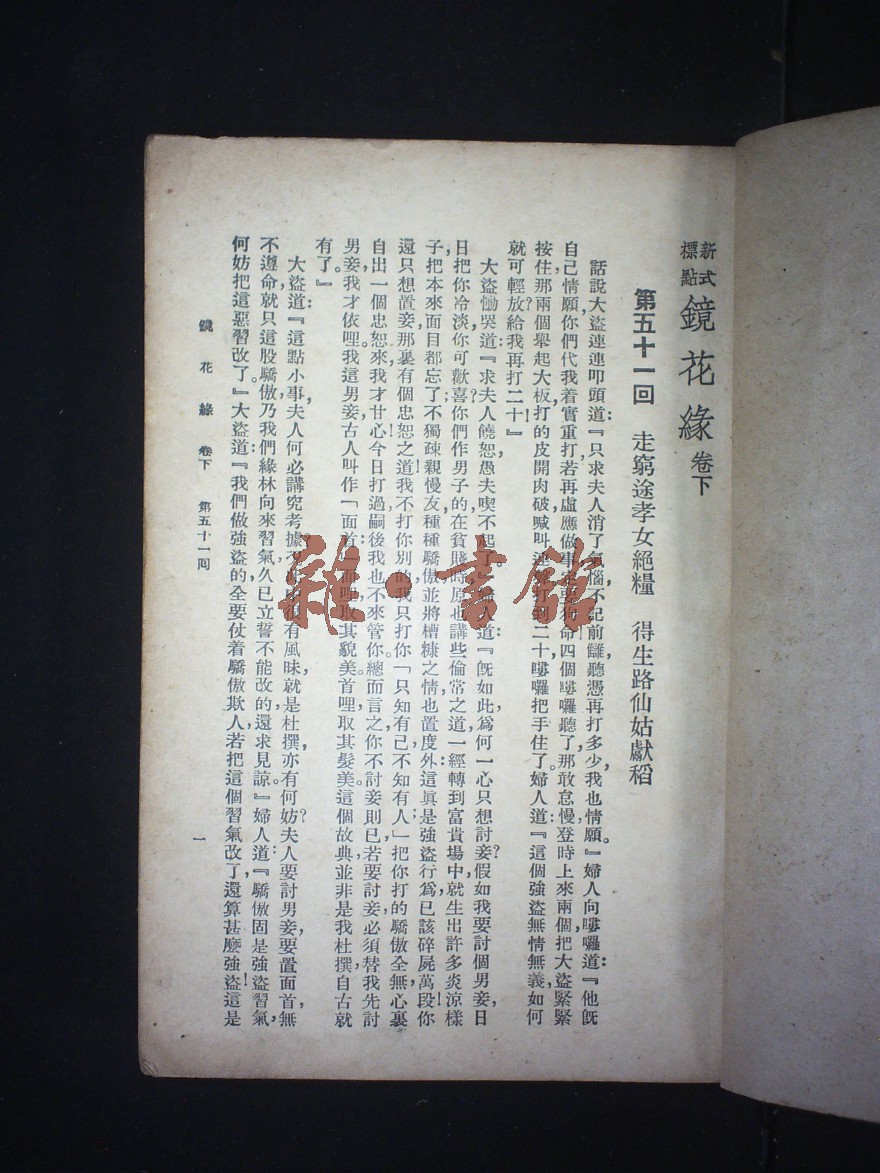 新式標點 鏡花緣 卷下
第五十一回 走窮途孝女絕糧 得生路仙姑獻稻
話說大盜連連叩頭道：『只求夫人消了氣惱，不記前讎，聽憑再打多少，我也情願。』婦人向嘍囉道：『他既
自己情願，你們代我着實重打，若再虛應做事，定要狗命！四個嘍囉聽了，那敢怠慢，登時上來兩個，把大盜緊緊
按住，那兩個舉起大板，打的皮開肉破，喊叫連聲。打到二十，嘍囉把手住了。婦人道：『這個強盜無情無義，如何
就可輕放？給我再打二十！』
大盜慟哭道：『求夫人饒恕，愚夫喫不起了。』婦人道：『既如此，爲何一心只想討妾？假如我要討個男妾，日
日把你冷淡，你可歡喜？你們作男子的，在貧賤時，原也講些倫常之道；一經轉到富貴場中，就生出許多炎涼樣
子，把本來面目都忘了；不獨疎親慢友，種種驕傲，並將槽糠之情也置度外。這眞是強盜行爲，已該碎屍萬段！你
還只想置妾，那裏有個忠恕之道！我不打你別的，我只打你「只知有己，不知有人」把你打的驕傲全無，心裏
自出一個忠恕來，我才甘心！今日打過，嗣後我也不來管你。總而言之：你不討妾則已，若要討妾，必須替我先討
男妾，我才依哩。我這男妾，古人叫作「面首」面哩，取其貌美；首哩，取其髮美。這個故典，並非是我杜撰，自古就
有了。』
大盜道：『這點小事，夫人何必講究考據
有風味，就是杜撰，亦有何妨？夫人要討男妾，要置面首，無
不遵命。就只這股驕傲，乃我們綠林向來習氣，久已立誓不能改的，還求見諒。』婦人道：『驕傲固是強盜習氣，
何妨把這惡習改了？』大盜道：『我們做強盜的，全要仗着驕傲欺人，若把這個習氣改了，還算甚麽強盜！這是
鏡花緣 卷下 第五十一回
一
雜·書館